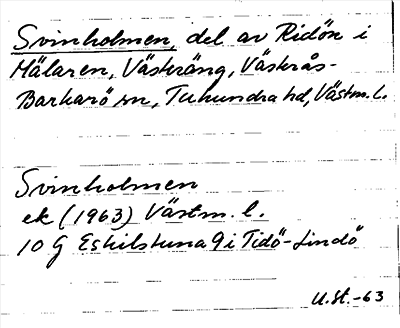 Svinholmen, del av Ridön i
Mälaren, Västeräng, Västerås-
Barkarö sn, Tuhundra hd, Västm. l.
Svinholmen
ek (1963) Västm. l.
10 G Eskilstuna 9 i Tidö-Lindö
U.St. -63